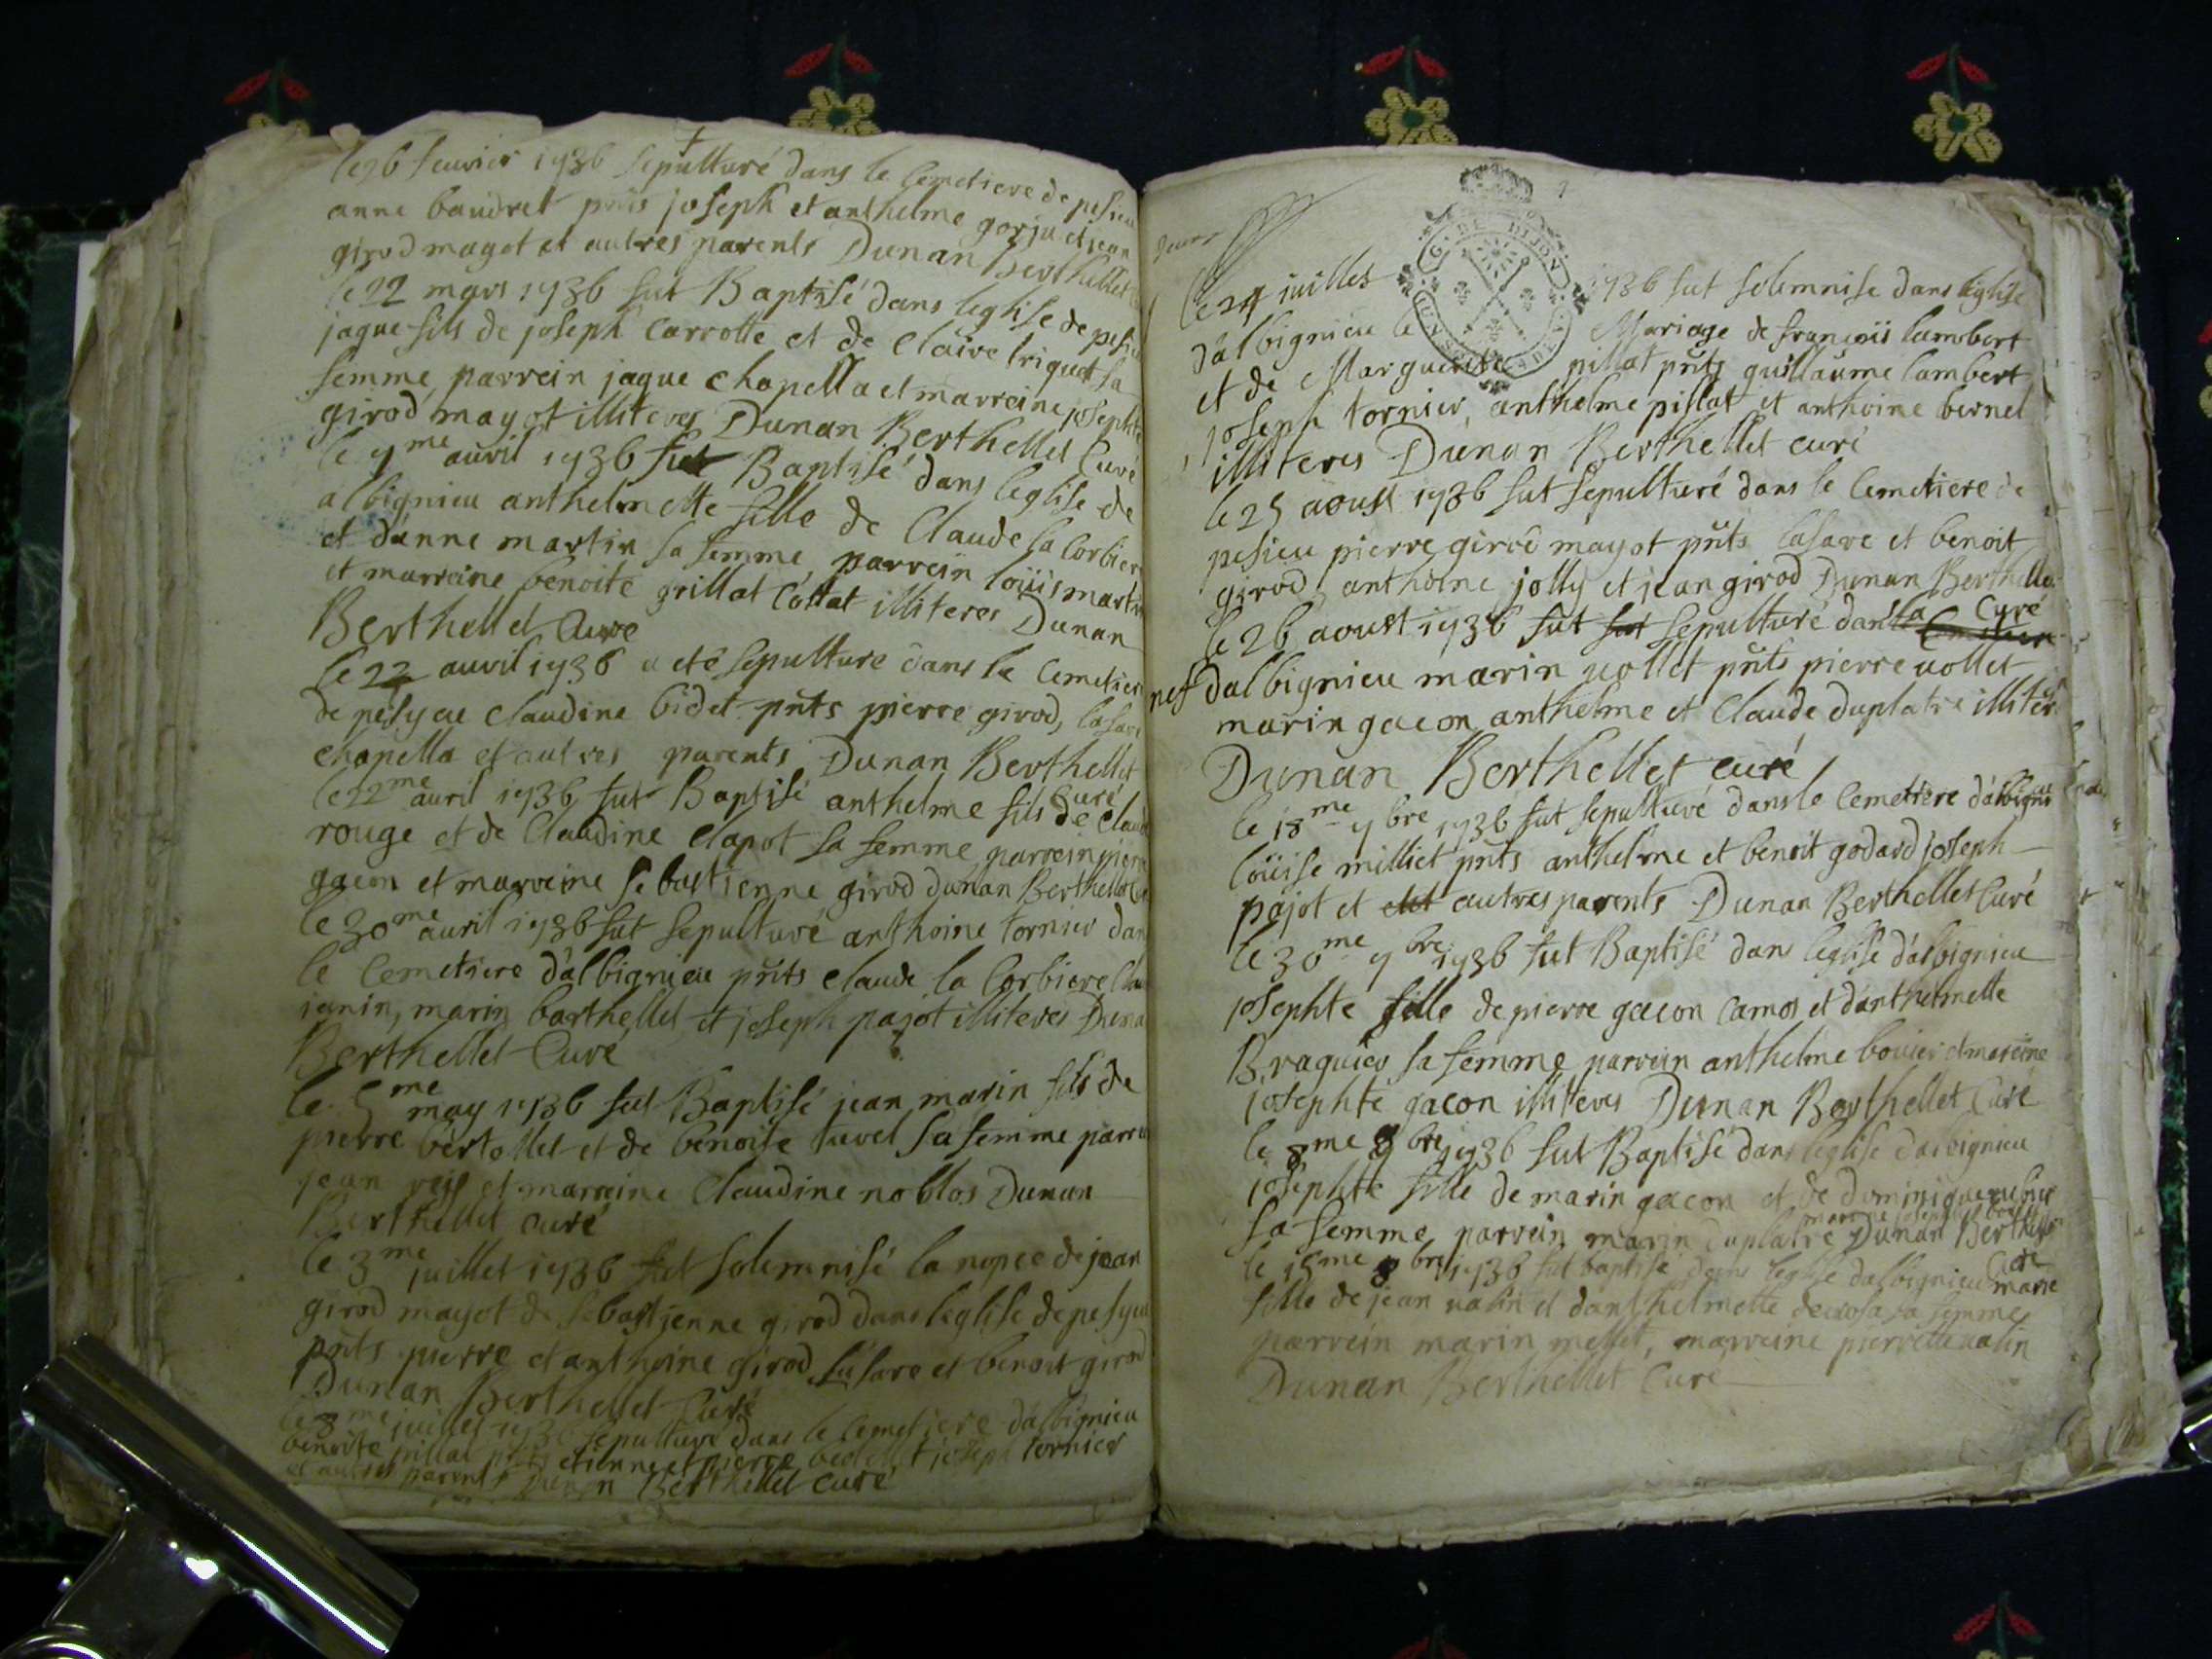 le 26 feuvier 1736 sepulturé dans le Cemetiere de pesieu
anne baudret pn̄ts joseph et anthelme gorju et jean
girod mayot et autres parents Dunan Berthellet
le 22 mars 1736 fut Baptisé dans leglise de pesieu
jaque fils de joseph Carrotte et de Claire triquet sa
femme, parrein jaque chapella et marreine josephte
girod mayot illiteres Dunan Berthellet Curé
le 7me auvil 1736 fut Baptisé dans leglise de
albignieu anthelmette fille de Claude la Corbier
et d'anne martin sa femme, parrein loüis martin
et marreine benoite grillat Collat illiteres Dunan
Berthellet Curé
le 22 auvil 1736 a eté sepulturé dans le Cemetiere
de pesyeu Claudine bidet pn̄ts pierre girod, lasare
chapella et autres parents Dunan Berthellet
Curé
le 22me auril 1736 fut Baptisé anthelme fils de Claude
rouge et de Claudine Clapot sa femme, parrein pierre
gacon et marreine sebastienne girod Dunan Berthellet
le 30me auril 1736 fut sepulturé anthoine tornier dan
le Cemetiere d'albignieu pn̄ts Claude la Corbiere
janin, marin barthellet, et joseph pajot illiteres Dunan
Berthellet Curé
le 5me may 1736 fut Baptisé jean marin fils de
pierre bertollet et de benoise sa femme parrein
jean et marreine Claudine noblos Dunan
Berthellet Curé
le 3me juillet 1736 fut solemnisé la nopce de jean
girod mayot de sebastienne girod dans leglise de pesyeu
pn̄ts pierre et anthoine girod lasare et benoit girod
Dunan Berthellet Curé
le 8me juillet 1736 sepulturé dans le Cemetiere d'albignieu
benoite pillat pn̄ts etienne et pierre joseph tornier
et autres parents Dunan Berthellet Curé
G. DE DIJON
le 24 juillet 1736 fut solemnise dans leglise
d'albignieu le Mariage de françois lambert
et de Marguerite pillat pn̄ts guillaume lambert
joseph tornier, anthelme pillat et anthoine bernel
illiteres Dunan Berthellet curé
le 25 aoust 1736 fut sepulturé dans le Cemetiere de
pesieu pierre girod mayot pn̄ts lasare et benoit
girod, anthoine jolly et jean girod Dunan Berthellet
Curé
le 26 aoust 1736 fut fut sepulturé dans la Cemetiere
nef d'albignieu marin vollet pn̄ts pierre vollet
marin gacon anthelme et Claude duplatre illiteres
Dunan Berthellet curé
le 18me 7bre 1736 fut sepulturé dans le Cemetiere d'albignieu
loüise milliet pn̄ts anthelme et benoit godard joseph
pajot et autres parents Dunan Berthellet Curé
le 30me 7bre 1736 fut Baptisé dans leglise d'albignieu
josephte fille de pierre gacon Camos et d'anthelmette
Braguier sa femme parrein anthelme bouier et mareine
josephte gacon illiteres Dunan Berthellet Curé
le 8me 8bre 1736 fut Baptisé dans leglise d'albignieu
josephte fille de marin gacon et de dominique
sa femme parrein marin duplatre Dunan Berthellet
Curé
le 15me 8bre 1736 fut baptise dans leglise d'albignieu marie
fille de jean valin et d'anthelmette sa femme
parrein marin mellet, marreine pierrette valin
Dunan Berthellet Curé